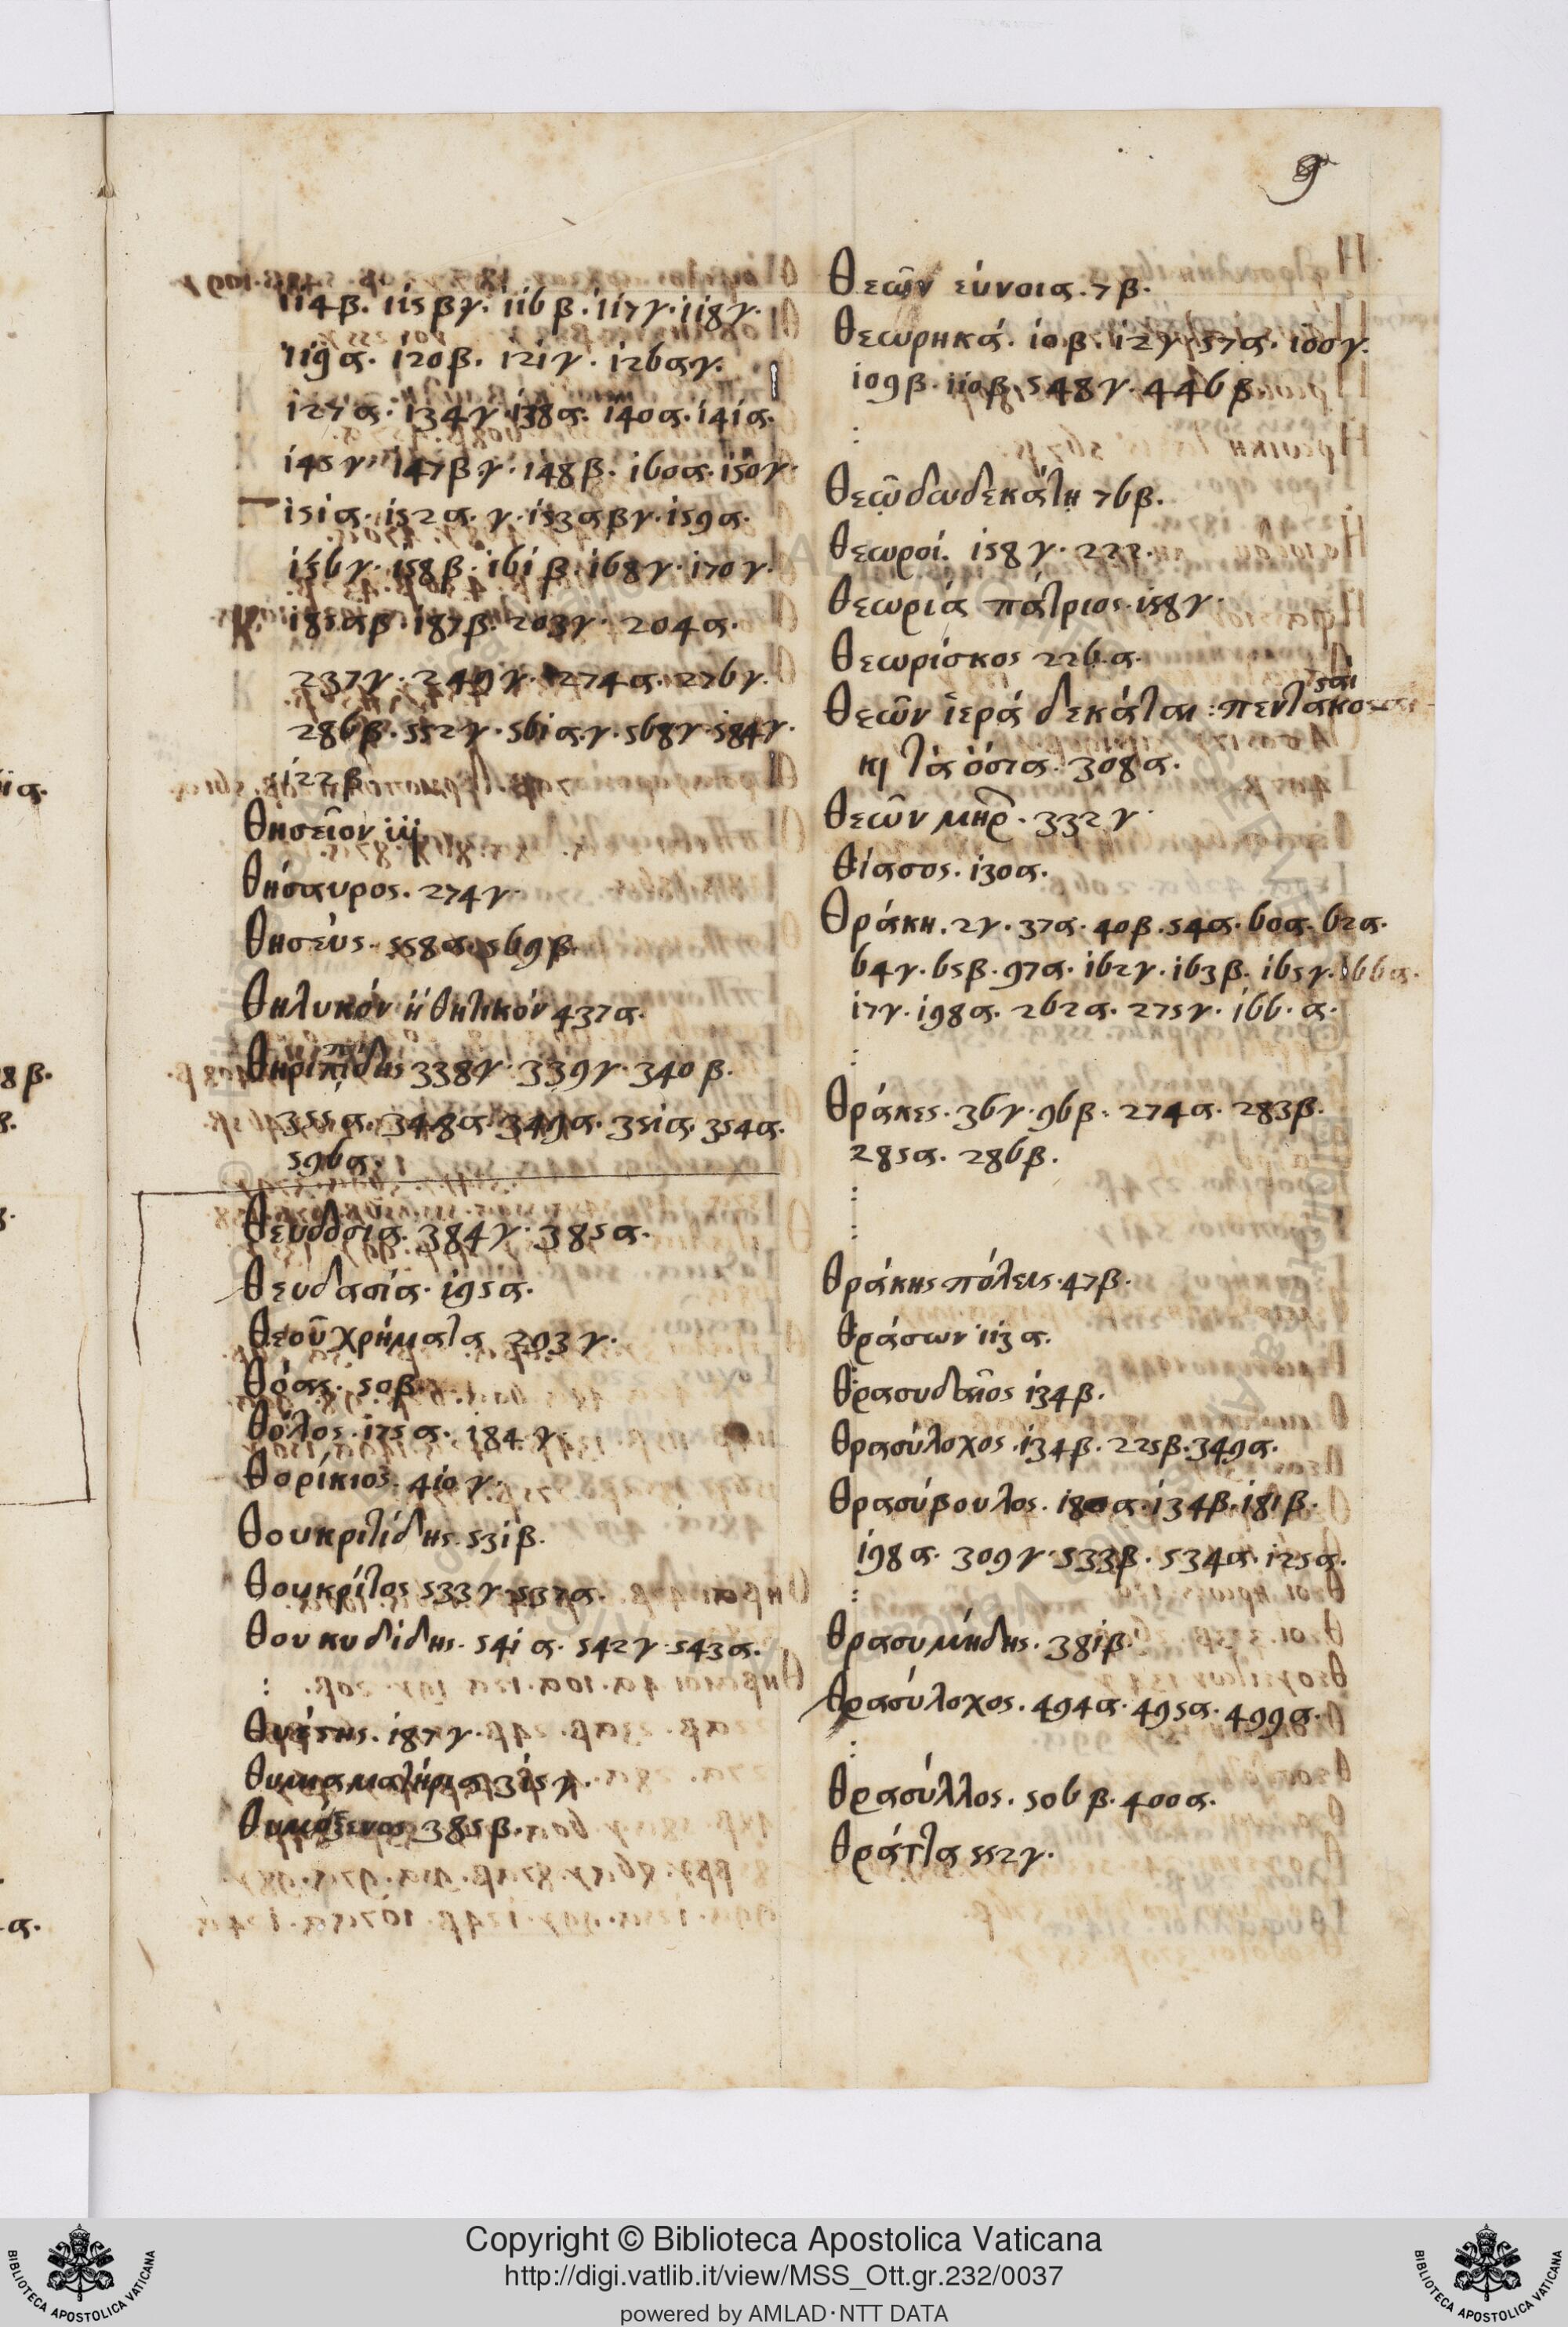 9
114β. 115βγ. 116β. 117γ. 118γ.
119α. 120β. 121γ. 126αγ.
127α. 134γ. 138α. 140α. 141α.
145γ. 147β.γ. 148β. 160α. 150γ.
151α. 152α. γ. 153αβγ. 159α.
156γ. 158β. 161β. 168γ. 170γ.
185αβ. 187β. 203γ. 204α.
237γ. 249γ. 274α. 276γ.
286β. 552γ. 561α.γ. 568γ. 584γ.
122β
Θησεῖον
Θήσαυρος. 274γ.
Θησεύς. 558α. 569β.
Θηλυκόν ἢ θητικόν 437α.
338γ. 339γ. 340β.
355α. 348α. 349α. 351α. 354α.
596α.
Θευδοσια. 384γ. 385α.
Θευδασία. 195α.
Θεοῦ χρήματα 293γ.
Θόας. 50β.
Θόλος. 175α. 184γ.
Θορίκιος. 410γ.
Θουκριτίδης. 531β.
Θουκρίτος 533γ. 537α.
Θουκυδίδης. 541α. 542γ. 543α.
:
Θυέστης. 187γ.
Θυμιαματήρια 315γ.
Θυμόξενος 385β.
Θεῶν εύνοια. 7β.
Θεωρηκά. 10.β. 12γ. 57α. 100γ.
109β. 110β. 548γ. 446β
:
Θεῷ δωδεκάτῃ 76β.
Θεωροί. 158γ. 222.
Θεωριά πάτριος. 158γ.
Θεωρίσκος 226.α.
Θεῶν ἱερά δεκάται: πεντακοσαι
κỳ τὰ ὁσια. 308α.
Θεῶν μηρ. 332γ.
Θίασος. 130α.
Θράκη. 2γ. 37α. 40β. 54α. 60α. 62α.
64γ. 65β. 97α. 162γ. 163β. 165γ. 166α.
17γ. 198α. 262α. 275γ. 166. α.
:
Θράκες. 36γ. 96β. 274α. 283β.
285α. 286β.
:
:
Θράκης πόλεις. 47β.
Θράσων 113α.
Θρασυδαῖος 134β.
Θρασύλοχος. 134β. 225β. 349α.
Θρασύβουλος. 180α. 134β. 181β.
198α. 309γ. 533β. 534α. 125α.
:
Θρασυμήδης. 381β.
Θρασύλοχος. 494α. 495α. 499α.
:
Θρασύλλος. 506β. 400α.
Θρᾴττα 552γ.
Copyright © Biblioteca Apostolica Vaticana
http://digi.vatlib.it/view/MSS_Ott.gr.232/0037
powered by AMLAD·NTT DATA
BIBLIOTECA APOSTOLICA VATICANA
BIBLIOTECA APOSTOLICA VATICANA